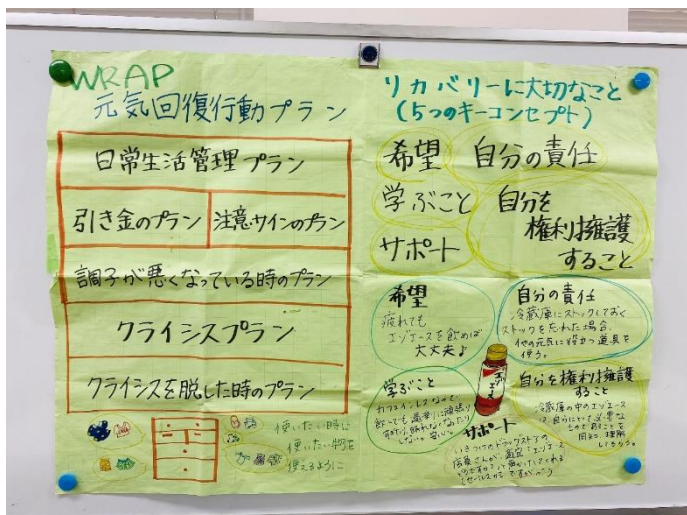 WRAP
元気回復行動プラン
日常生活管理プラン
引き金のプラン
注意サインのプラン
調子が悪くなっている時のプラン
クライシスプラン
クライシスを脱した時のプラン
使いたい時に
使いたい物を
使えるように
リカバリーに大切なこと
(5つのキーコンセプト)
希望
自分の責任
学ぶこと
自分を
権利擁護
すること
サポート
希望
疲れても
エゾエースを飲めば
大丈夫♪
自分の責任
冷蔵庫にストックしておく
ストックを忘れた場合、
他の元気に役立つ道具を
使う。
学ぶこと
カフェインレスなので
飲んでも
しない。安心。
自分を権利擁護
すること
冷蔵庫の中のエゾエース
は、自分にとって必要な
ものであることを
周りに理解
してもらう。
サポート
いきつけのドラッグストアの
店員さんが、